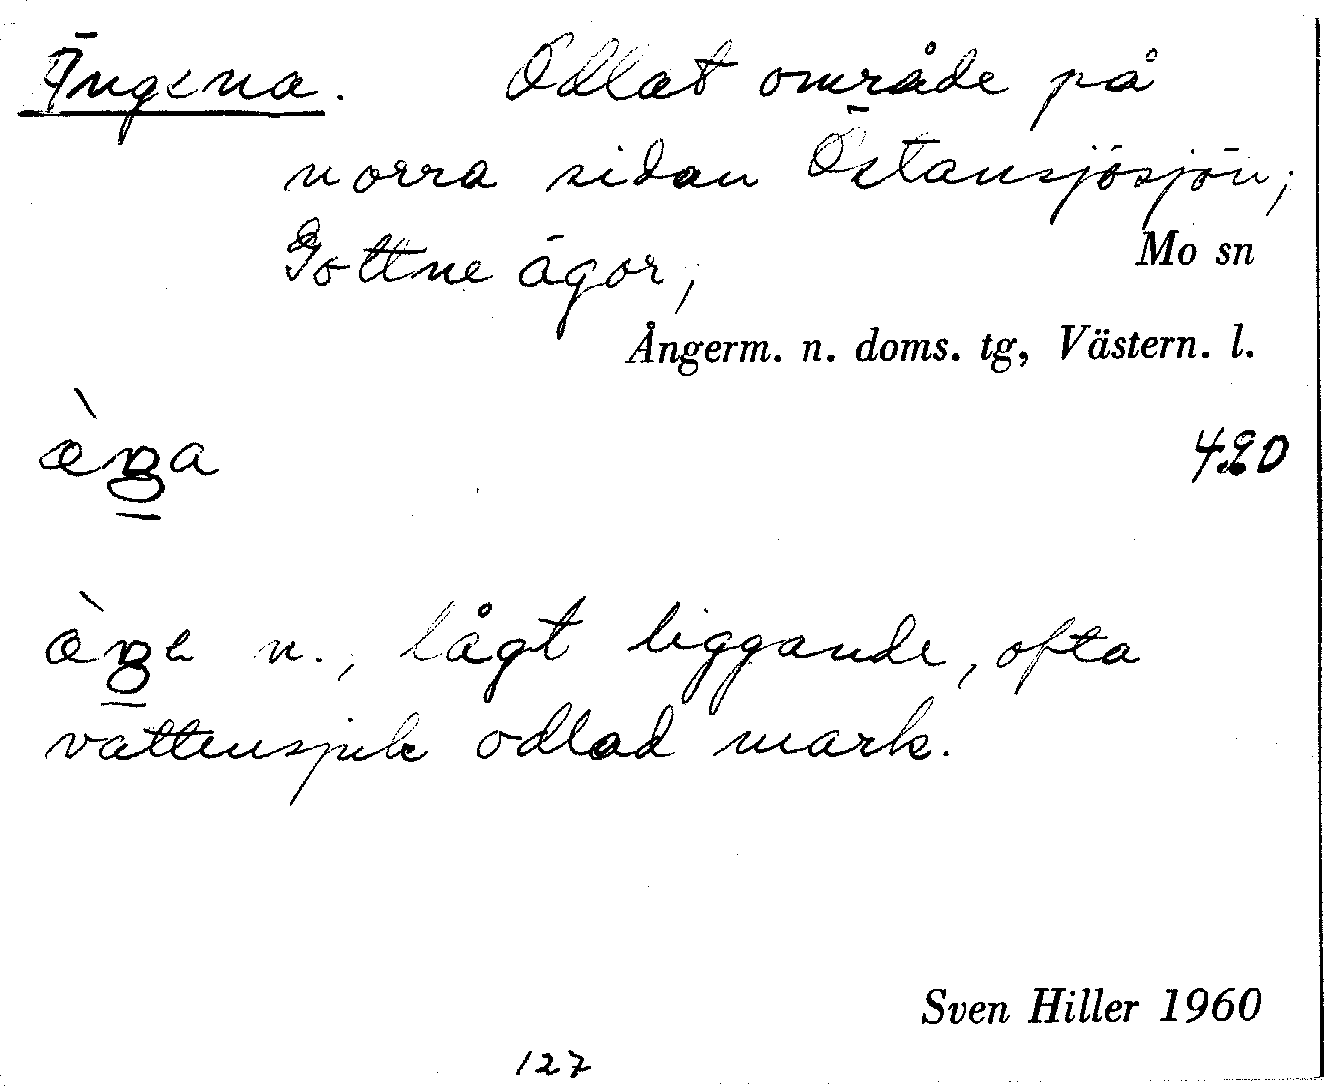 Ängena. Odlat område på
norra sidan Östansjösjön;
Gottne ägor; Mo sn
Ångerm. n. doms. tg, Västern. l.
420
n., lågt liggande, ofta
vattensjuk odlad mark.
Sven Hiller 1960
127